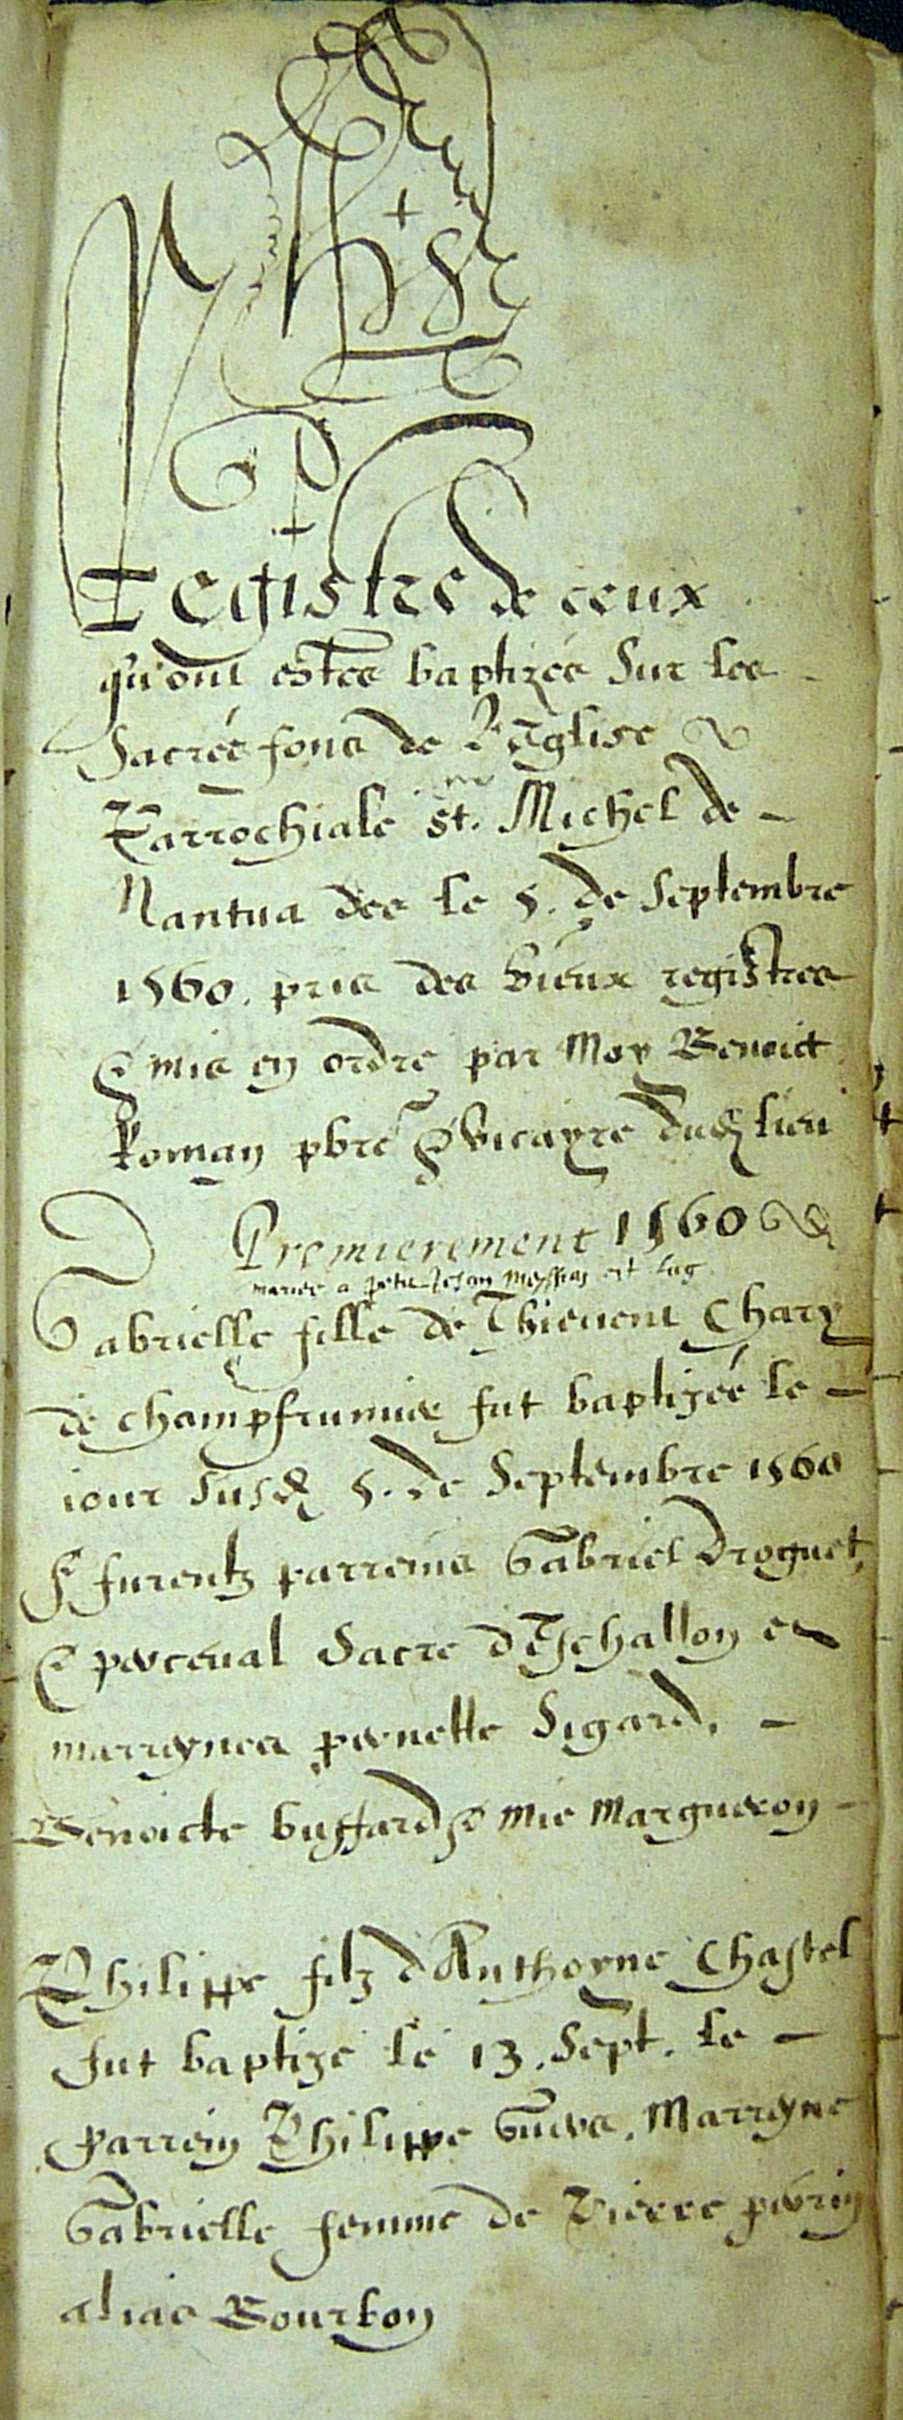 Ihs
Registre de ceux
qu'ont estes baptizés sur les
sacrés fons de l'Eglise
Parrochiale st. Michel de
Nantua des le 5. de Septembre
1560. pris des vieux registres
& mis en ordre par Moy Benoict
Roman pbre & vicayre dud lieu
Premierement 1560
mariee a petit Jehan
Gabrielle fille de Thievent Chary
de champfrumia fut baptizée le
iour susd 5. de Septembre 1560
& furentz parreins Gabriel Droguet,
& perceval Sacre d'Eschallon et
marreynes pernette Sigard.
Benoicte buffard & Mie Margueron
Philippe filz d'Anthoyne Chastel
fut baptizé le 13. Sept. le
Parrein Philippe Marreyne
Gabrielle femme de Pierre perrin
alias Bourbon